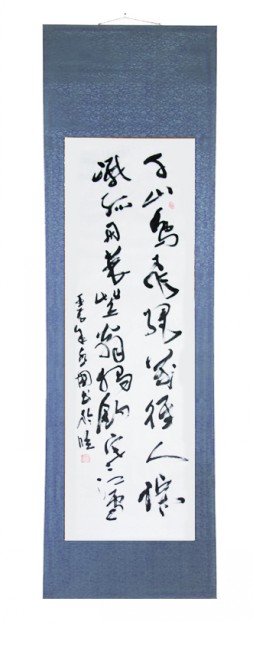 千山鳥飛絕萬徑人蹤
滅孤舟蓑笠翁獨釣寒江雪
年書於